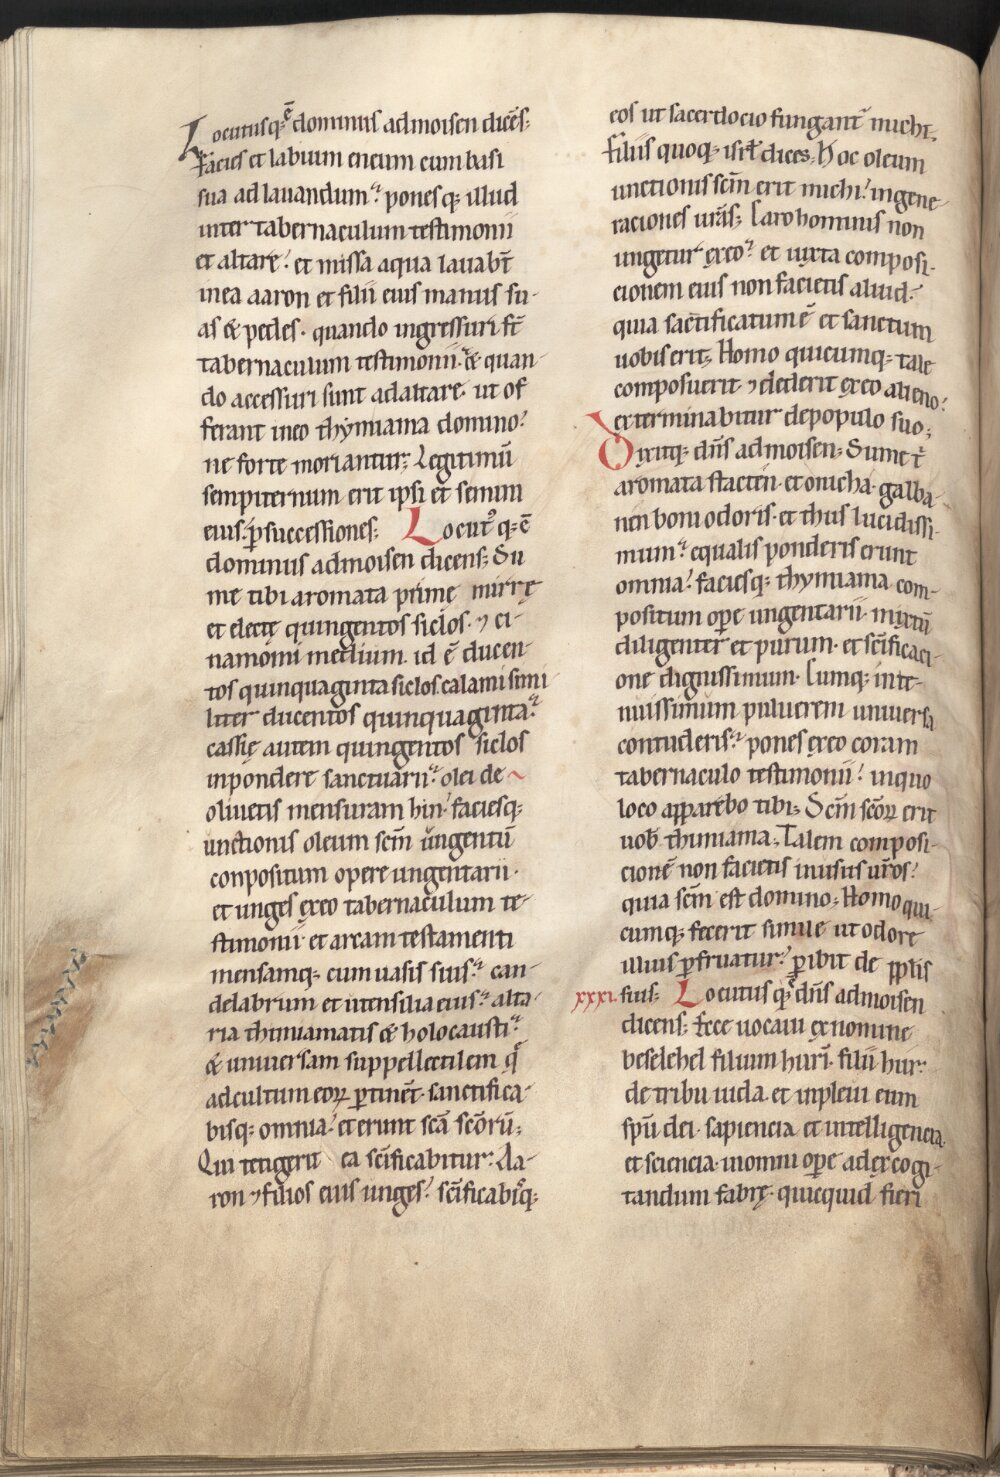 Locutusq; ē dominus ad moisen dicēs;
Facies et labium eneum cum basi
sua ad lauandum. ponesq; illud
inter tabernaculum testimonii
et altare. et missa aqua lauabt̄
in ea aaron et filii eius manus su-
as & pedes. quando ingressuri st̄
tabernaculum testimonii. & quan-
do accessuri sunt ad altare. ut of
ferant in eo thymiama domino.
ne forte moriantur; Legitimū
sempiternum erit ipsi et semini
eius. ꝑ successiones; Locutꝰ q; ē
dominus ad moisen dicens; Su
me tibi aromata prime mirrę
et electę quingentos siclos. ⁊ ci-
namomi medium. id ē ducen-
tos quinquaginta siclos. calami simi-
liter ducentos quinquaginta.
cassię autem quingentos siclos
in pondere sanctuarii. olei de
oliuetis mensuram hin. faciesq;
unctionis oleum scm̄ ungentū
conpositum opere ungentarii.
et unges ex eo tabernaculum te-
stimonii. et arcam testamenti
mensamq; cum uasis suis. can-
delabrum et utensilia eius. alta-
ria thimiamatis & holocausti.
& uniuersam suppellectilem q̄
ad cultum eoꝝ ꝑtinēt. sanctifica-
bisq; omnia. et erunt scā scōrū;
Qui tetigerit ea scīficabitur. Aa-
ron ⁊ filios eius unges. scīficabiꝰq;
eos ut sacerdocio fungant̄ michi.
Filiis quoq; isrł dices; Hoc oleum
unctionis scm̄ erit michi. in gene-
raciones urās; Caro hominis non
ungetur ex eo. et iuxta composi-
cionem eius non facietis aliud.
quia sāctificatum ē et sanctum
uobis erit; Homo quicumq; tale
composuerit. ⁊ dederit ex eo alieno.
exterminabitur de populo suo;
Dixitq; dn̄s ad moisen; Sume t̄
aromata stacten. et onicha. galba-
nen boni odoris. et thus lucidissi-
mum. equalis ponderis erunt
omnia. faciesq; thymiama com-
positum oꝑe ungentarii. mixtū
diligenter et purum. et scīficaci-
one dignissimum. Cumq; in te-
nuissimum puluerem uniuersa
contuderis. pones ex eo coram
tabernaculo testimonii. in quo
loco apparebo tibi; Scm̄ scōꝝ erit
uob̄ thimiama; Talem composi-
cionē non facietis in usus urōs.
quia scm̄ est domino; Homo qui-
cumq; fecerit simile ut odore
illius ꝑfruatur. ꝑibit de ppłis
xxxi. suis; Locutus q; ē dn̄s ad moisen
dicens; Ecce uocaui ex nomine
beselehel filium huri. filii hur.
de tribu iuda. et inpleui eum
spū dei. sapiencia et intelligencia
et sciencia. in omni oꝑe ad excogi-
tandum fabrę. quicquid fieri